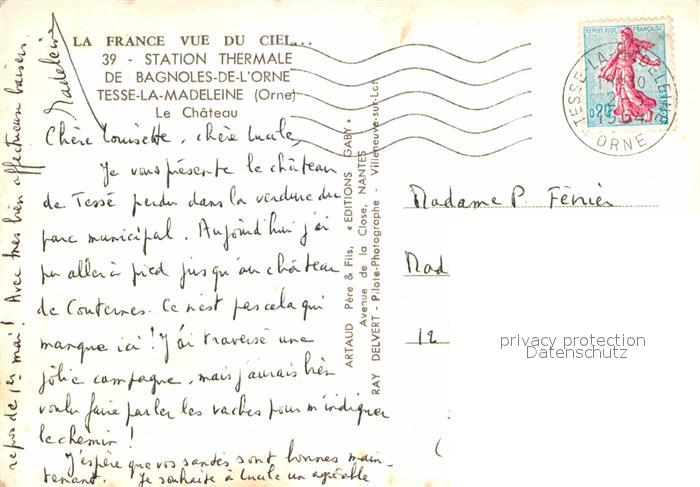 LA FRANCE VUE DU CIEL...
39 - STATION THERMALE
DE BAGNOLES-DE-L'ORNE
TESSE-LA-MADELEINE (Orne)
Le Château
Chère Louisette, chère Lucile,
Je vous présente le château
de Tessé perdu dans la verdure du
parc municipal. Aujourd'hui j'ai
pu aller à pied jusqu'au château
de Couternes. Ce n'est pas cela qui
manque ici ! J'ai traversé une
jolie campagne, mais j'aurais bien
voulu faire parler les vaches pour m'indiquer
le chemin !
J'espère que vos santés sont bonnes main-
tenant. Je souhaite à Lucile un agréable
repos de 1er mai ! Avec mes bien affectueux baisers
Madeleine
ARTAUD Père & Fils, « EDITIONS GABY »
Avenue de la Close, NANTES
RAY DELVERT - Pilote-Photographe - Villeneuve-sur-Lot
REPUBLIQUE FRANÇAISE
0,20
POSTES
TESSE-LA-MADELEINE
ORNE
Madame P. Février
Mad
12
privacy protection
Datenschutz